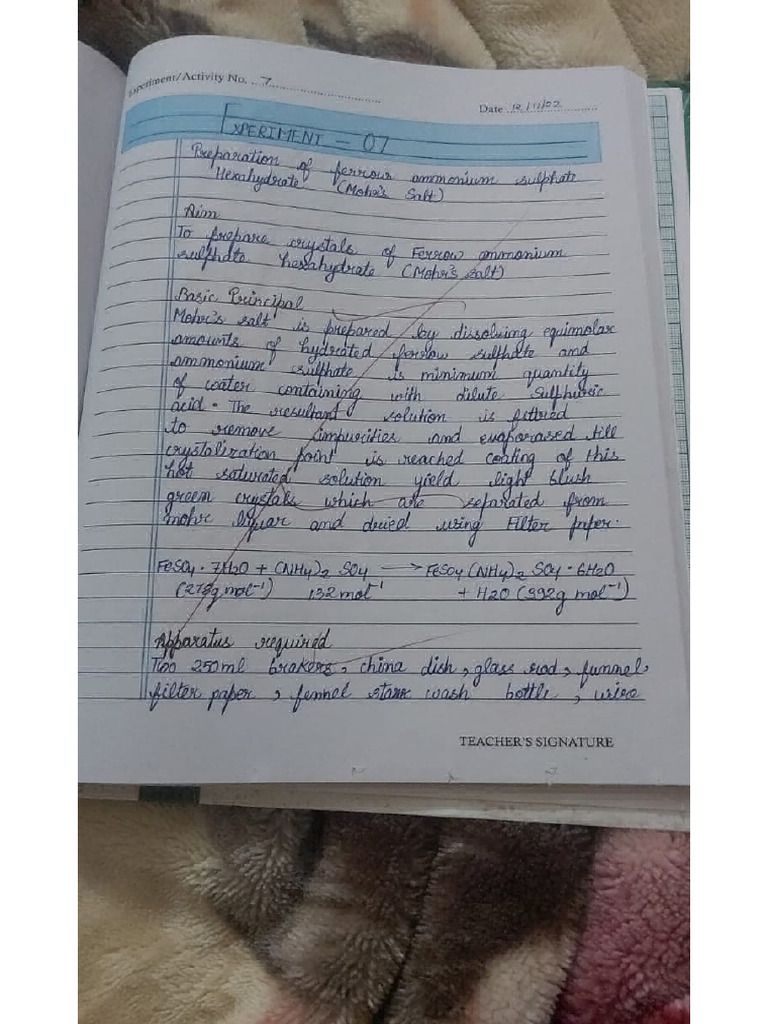 Experiment/Activity No. ... 7
Date 12/11/02
EXPERIMENT - 07
Preparation of ferrous ammonium sulphate
Hexahydrate (Mohr's Salt)
Aim
To prepare crystals of Ferrow ammonium
sulphate hexahydrate (Mohr's salt)
Basic Principal
Mohr's salt is prepared by dissolving equimolar
amounts of hydrated ferrow sulphate and
ammonium sulphate is minimum quantity
of water containing with dilute Sulphuric
acid. The resultant solution is filtred
to remove impurities and evaporased till
crystalization point is reached coating of this
hot saturated solution yield light blush
green crystals which are separated from
mohr liquar and dried using Filter paper.
FeSO4·7H2O + (NH4)2 SO4 → FeSO4 (NH4)2 SO4·6H2O
(278g mol⁻¹) 132 mol⁻¹ + H2O (392g mol⁻¹)
Apparatus required
Two 250ml brakers, china dish, glass rod, funnel,
filter paper, fennel stane wash bottle, wire
TEACHER'S SIGNATURE